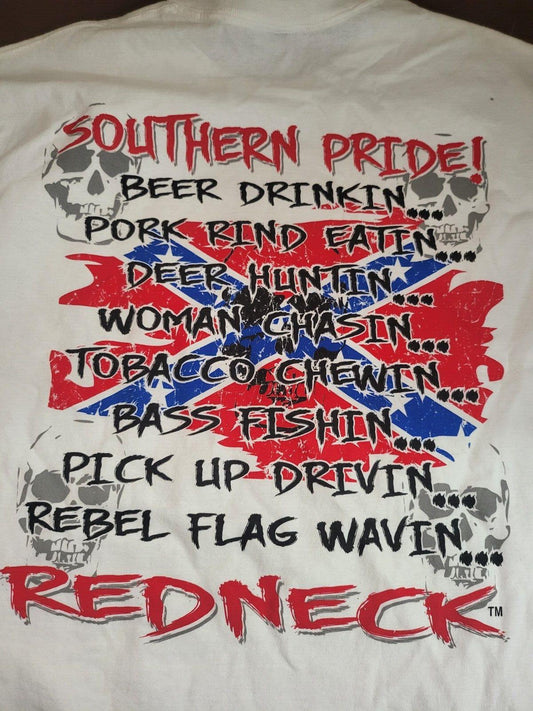 SOUTHERN PRIDE!
BEER DRINKIN...
PORK RIND EATIN...
DEER HUNTIN...
WOMAN CHASIN...
TOBACCO CHEWIN...
BASS FISHIN...
PICK UP DRIVIN...
REBEL FLAG WAVIN...
REDNECK TM